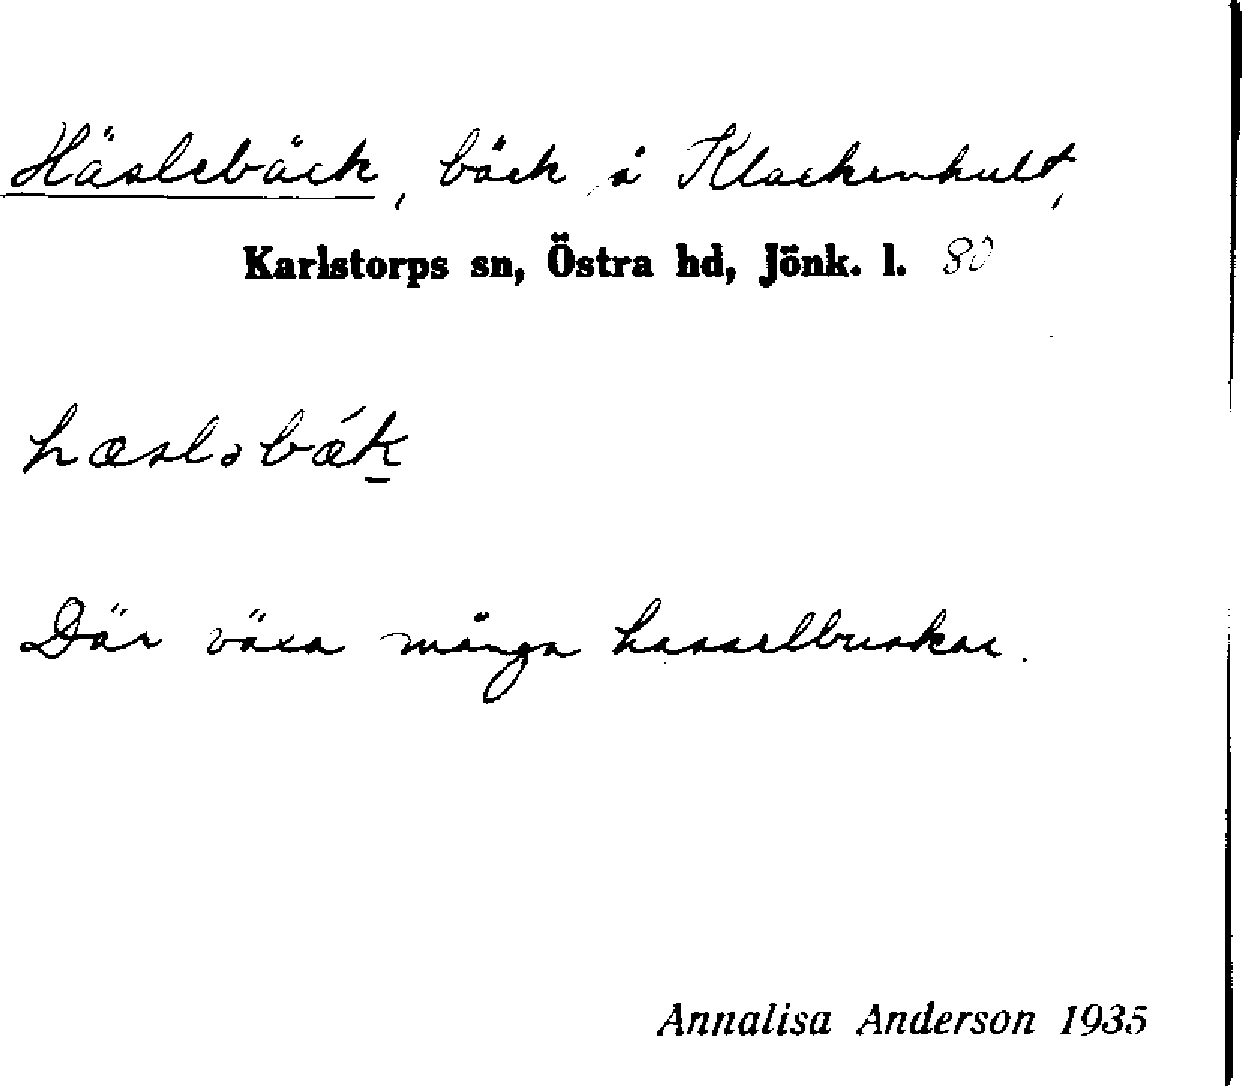 Häslebäck, bäck å Klackenhult,
Karlstorps sn, Östra hd, Jönk. l. 80
hæsləbǽk
Där växa många hasselbuskar.
Annalisa Anderson 1935